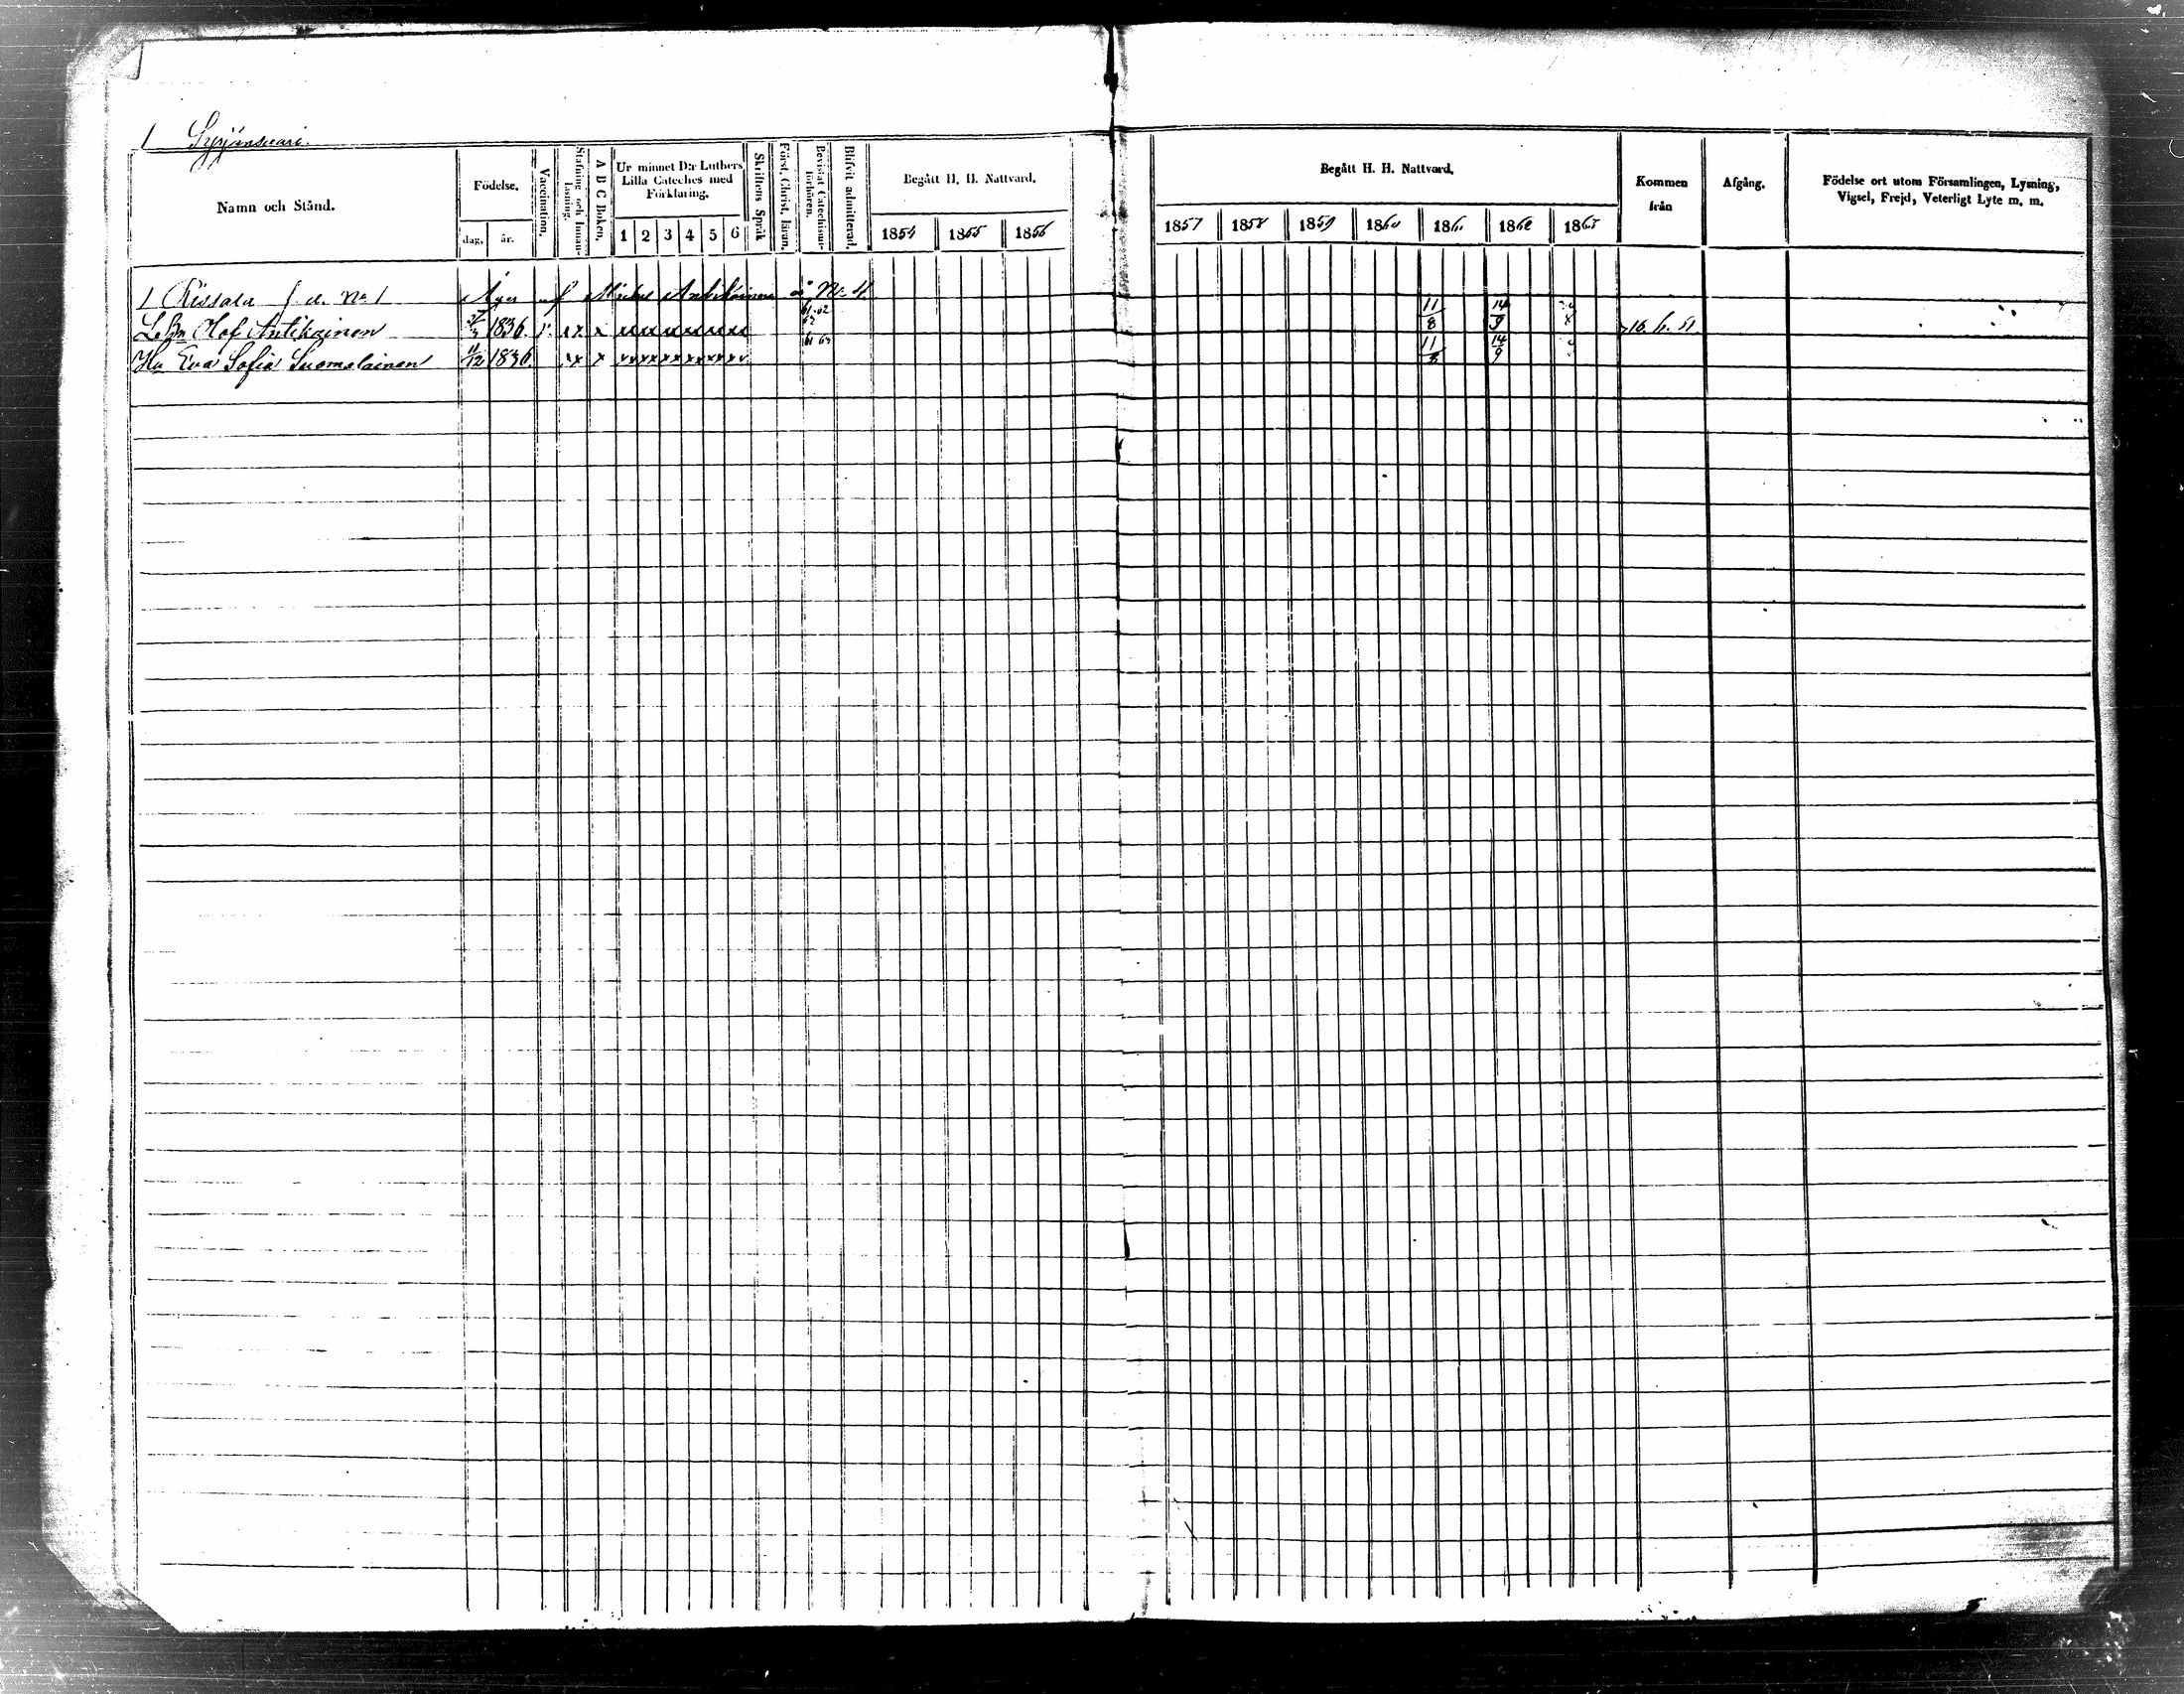 1 Syrjänsaari.
Namn och Stånd.
Födelse.
dag. år.
Vaccination.
Stafning och Innanläsning.
A B C Boken.
Ur minnet D:r Luthers Lilla Cateches med Förklaring.
1 2 3 4 5 6
Skriftens Språk
Först. Christ. läran.
Bevistat Catechismiförhören.
Blifvit admitterad.
Begått H. H. Nattvard.
1854 1855 1856
Begått H. H. Nattvard.
1857 1858 1859 1860 1861 1862 1863
Kommen från
Afgång.
Födelse ort utom Församlingen, Lysning, Vigsel, Frejd, Veterligt Lyte m. m.
1 Rissala f. d. No 1 Äges af Michel Antikainen å No 4
Olof Antikainen 1836. x x x xx xx xx xx xx xx 61. 62 63 11/8 14/9
Hu Eva Sofia Suomalainen 11/12 1836. x x x xx xx xx xx xx xx 61 63 11/8 14/9